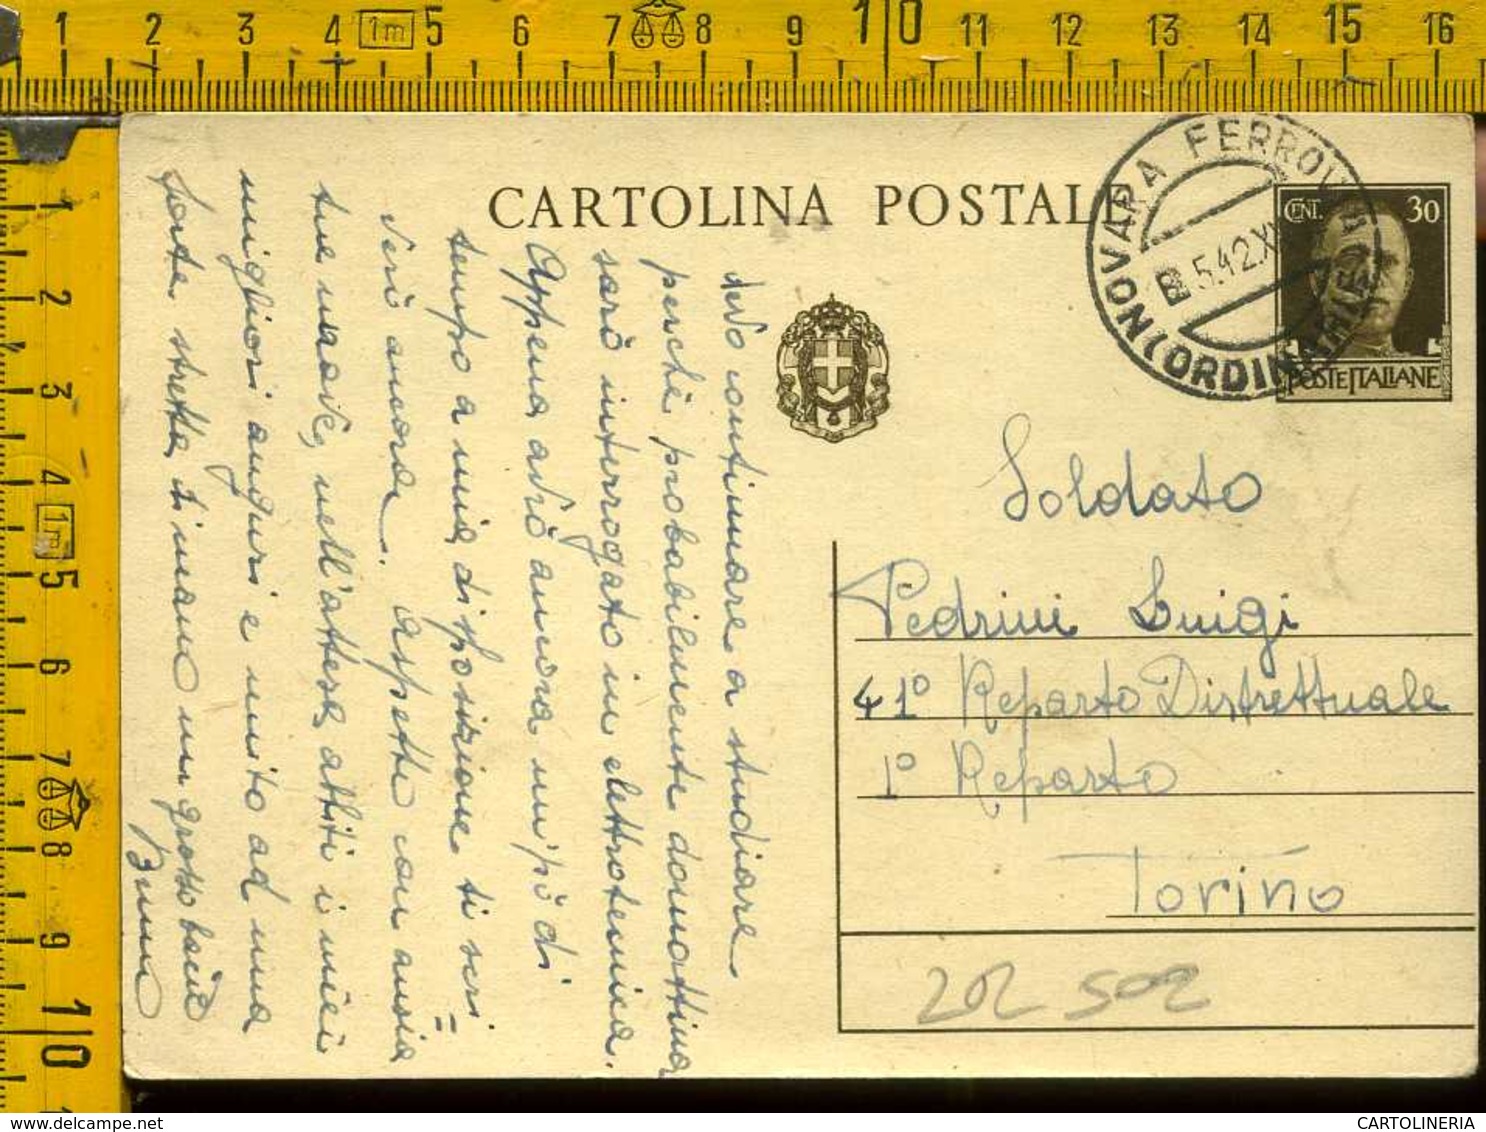 1 2 3 4 1m 5 6 7 8 9 10 11 12 13 14 15 16
CARTOLINA POSTALE
NOVARA FERROVIA
5.42.XX
(ORDINARIE)
CENT. 30
POSTE ITALIANE
Soldato
Pedrini Luigi
41° Reparto Distrettuale
1° Reparto
Torino
202 502
devo continuare a studiare
perchè probabilmente domattina
sarò interrogato in elettrotecnica.
Appena avrò ancora un pò di
tempo a mia disposizione ti scri=
verò ancora. Aspetta con ansia
tue nuove, nell'attesa abbiti i miei
migliori auguri e unito ad una
forte stretta di mano un grosso bacio
1 2 3 4 1m 5 6 7 8 9 10
www.delcampe.net
CARTOLINERIA